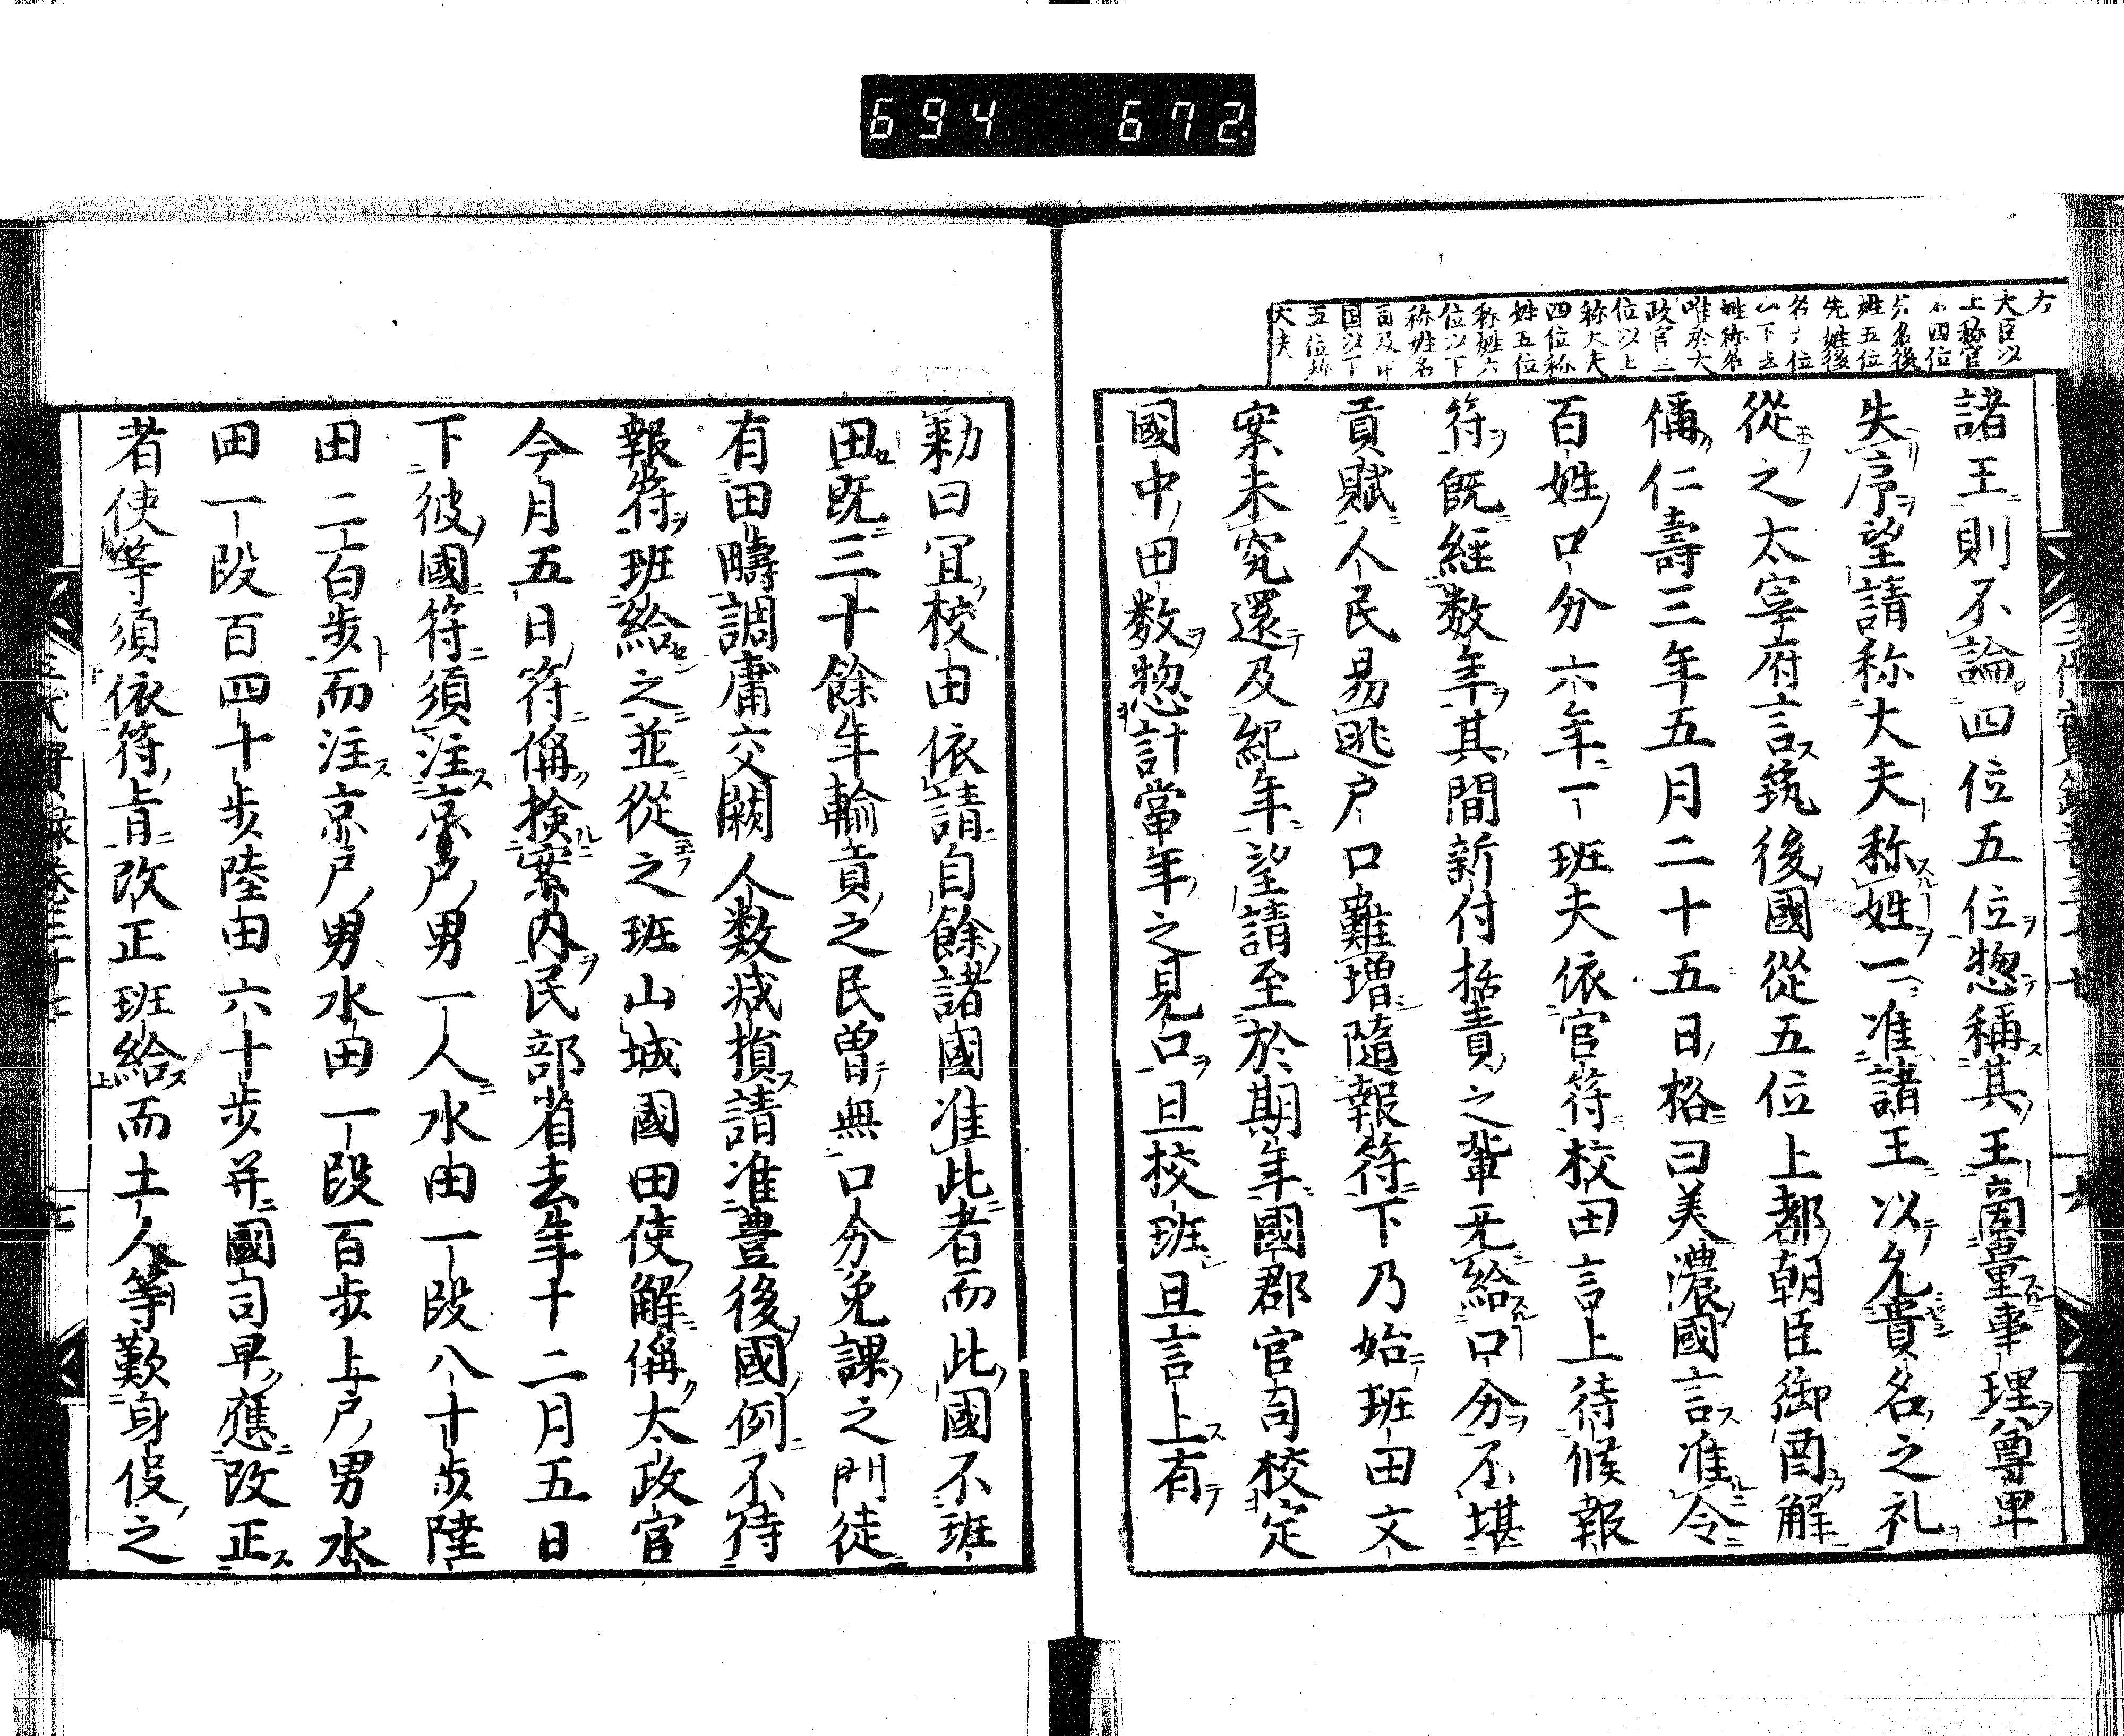 694 672.
大臣以
上称官
姓五位
先姓後
姓称名
唯於大
政官三
位以上
称大夫
四位称
姓五位
称姓六
位以下
称姓名
司及中
国以下
五位称
大夫
諸王則不論四位五位惣稱其王商量事理尊卑
失序望請称大夫称姓一准諸王以允貴名之礼
從之太宰府言筑後國從五位上都朝臣御酉解
偁仁壽三年五月二十五日格曰美濃國言准令
百姓口分六年一班夫依官符校田言上待候報
符既経数年其間新付括責之輩無給口分不堪
貢賦人民易逃戸口難増隨報符下乃始班田文
案未究還及紀年望請至於期年國郡官司校定
國中田数惣計當年之見口且校班且言上有
勅曰冝校田依請自餘諸國准此者而此國不班
田既三十餘年輸貢之民曽無口分免課之門徒
有田疇調庸交闕人数減損請准豊後國例不待
報符班給之並從之班山城國田使解偁太政官
今月五日符偁検案内民部省去年十二月五日
下彼國符須注京戸男一人水田一段八十歩陸
田二百歩而注京戸男水田一段百歩土戸男水
田一段百四十歩陸田六十歩并國司早應改正
者使等須依符旨改正班給而土人等歎身役之